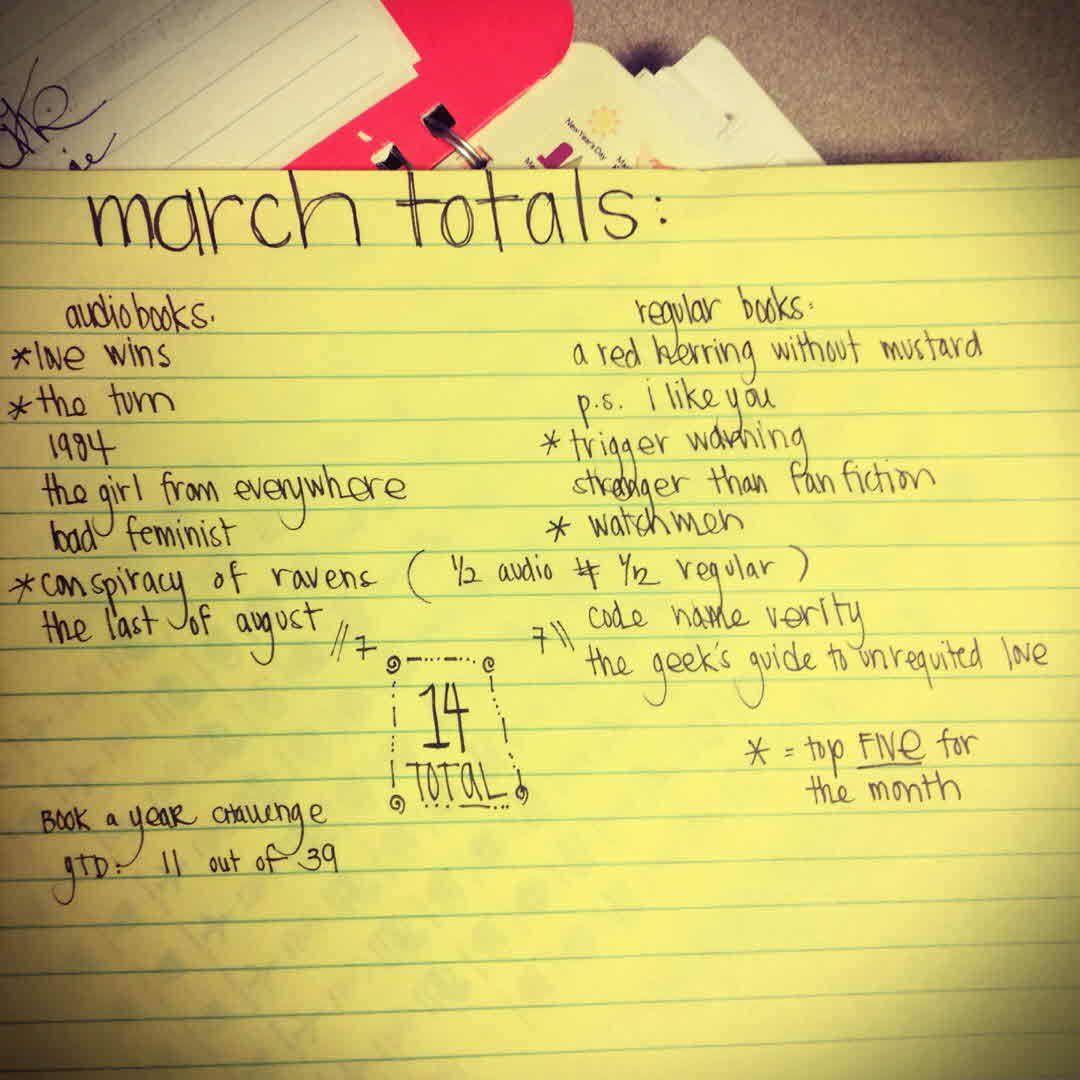 New Year's Day
march totals:
audiobooks.
*love wins
*the turn
1984
the girl from everywhere
bad feminist
*conspiracy of ravens (1/2 audio # 1/2 regular)
the last of august //7
regular books:
a red herring without mustard
p.s. i like you
* trigger warning
stranger than fanfiction
* watchmen
code name verity
7\\ the geek's guide to unrequited love
14
TOTAL
* = top FIVE for
the month
BOOK a YEAR CHALLENGE
gTD: 11 out of 39